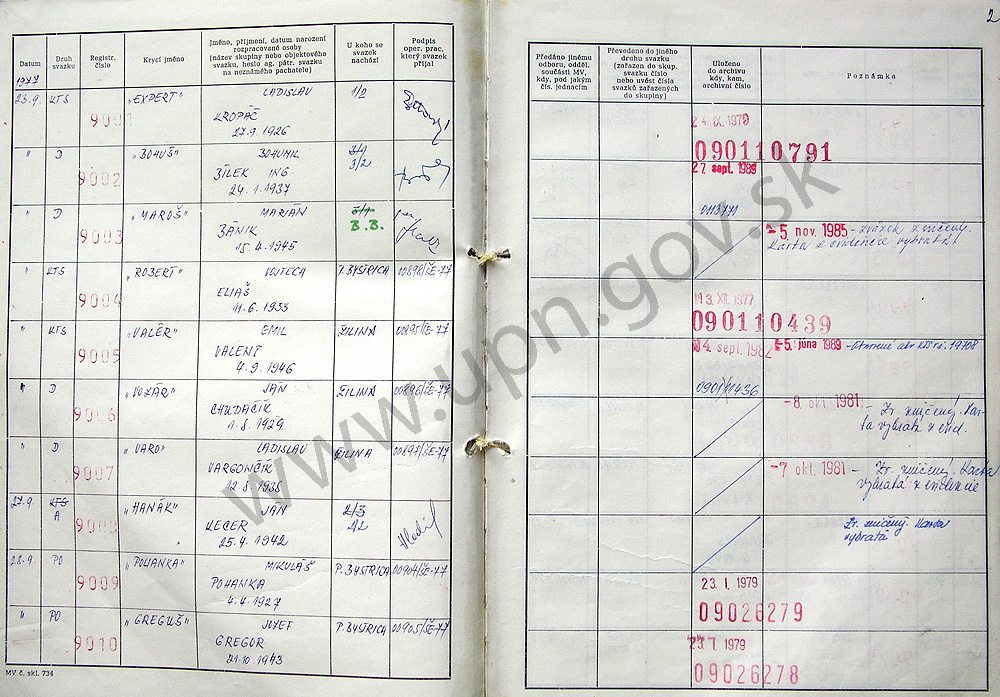 2
Datum
Druh svazku
Registr. číslo
Krycí jméno
Jméno, příjmení, datum narození
rozpracované osoby
(název skupiny nebo objektového
svazku, heslo ag. pátr. svazku
na neznámého pachatele)
U koho se
svazek
nachází
Podpis
oper. prac.
který svazek
přijal
1977
23.9. KTS 9001 „EXPERT" LADISLAV 1/2
KROPÁČ
27.9.1926
" D 9002 „BOHUŠ" BOHUMIL
3/2
BÍLEK ING.
24.1.1937
" D 9003 „MAROŠ" MARIÁN
B.B.
BÁNIK
15.4.1945
" KTS 9004 „ROBERT" VOJTECH P.BYSTRICA 00898/ŠE-77
ELIAŠ
11.6.1933
" KTS 9005 „VALÉR" EMIL ŽILINA 00895/ŠE-77
VALENT
4.9.1946
" D 9006 JÁN ŽILINA 00896/ŠE-77
CHUDAČÍK
1.8.1929
" D 9007 „VARO" LADISLAV ŽILINA 00897/ŠE-77
VARGONČÍK
12.8.1938
27.9. KTS A „HANÁK" JÁN 2/3
LECER
25.4.1942
28.9. PO 9009 „POHANKA" MIKULÁŠ P.BYSTRICA 00904/ŠE-77
POHANKA
4.4.1927
" PO 9010 „GREGUŠ" JOZEF P.BYSTRICA 00905/ŠE-77
GREGOR
21.10.1943
MV č. skl. 734
Předáno jinému
odboru, odděl.
součásti MV,
kdy, pod jakým
čís. jednacím
Převedeno do jiného
druhu svazku
(zařazen do skup.
svazku číslo
nebo uvést čísla
svazků zařazených
do skupiny)
Uloženo
do archivu
kdy, kam,
archivní číslo
Poznámka
24. IX. 1979
090110791
27. sept. 1989
-5. nov. 1985 - zväzok zničený.
Karta z evidencie vybratá!
13. XII. 1977
090110439
14. sept. 1982 -5. júna 1989
-8. okt. 1981 - Zv. zničený. Kar-
ta vybratá z evid.
-7. okt. 1981 - Zv. zničený. Karta
vybratá z evidencie
Zv. zničený. Karta
vybratá
23. I. 1979
09026279
23. I. 1979
09026278
www.upn.gov.sk